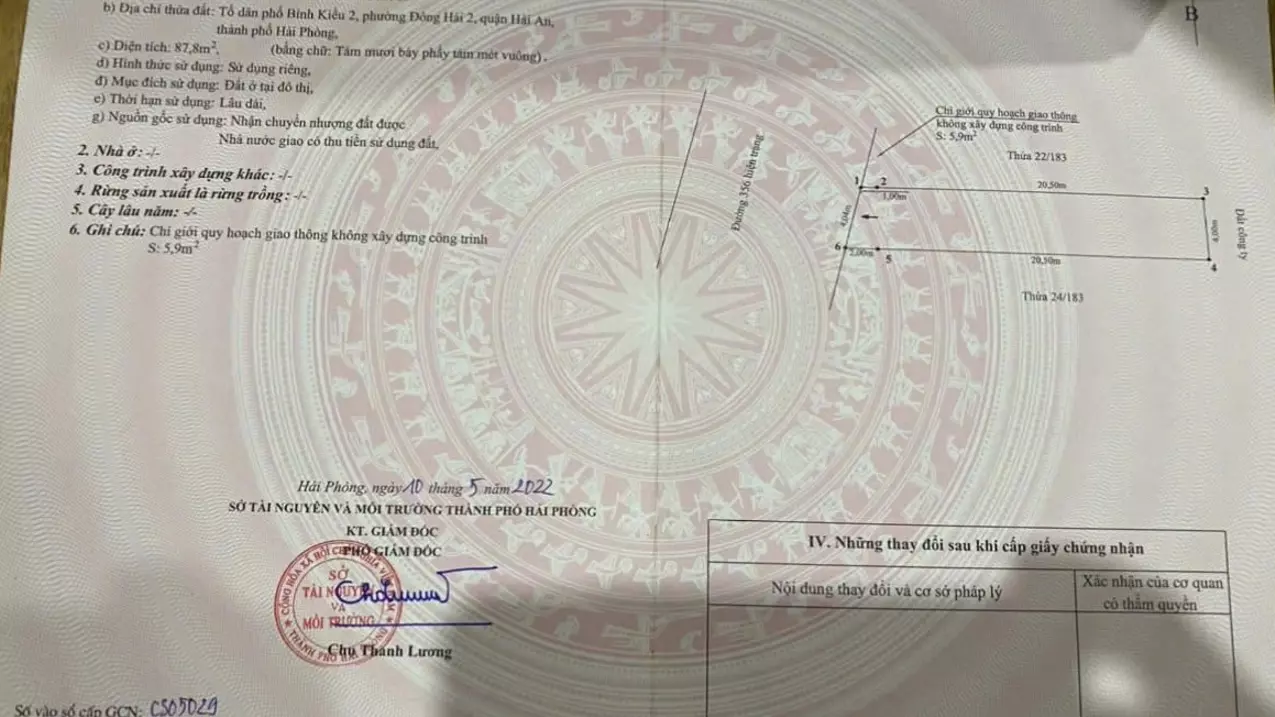 b) Địa chỉ thửa đất: Tổ dân phố Bình Kiều 2, phường Đông Hải 2, quận Hải An,
thành phố Hải Phòng,
c) Diện tích: 87,8m², (bằng chữ: Tám mươi bảy phẩy tám mét vuông).
d) Hình thức sử dụng: Sử dụng riêng,
đ) Mục đích sử dụng: Đất ở tại đô thị,
e) Thời hạn sử dụng: Lâu dài,
g) Nguồn gốc sử dụng: Nhận chuyển nhượng đất được
Nhà nước giao có thu tiền sử dụng đất,
2. Nhà ở: -/-
3. Công trình xây dựng khác: -/-
4. Rừng sản xuất là rừng trồng: -/-
5. Cây lâu năm: -/-
6. Ghi chú: Chỉ giới quy hoạch giao thông không xây dựng công trình
S: 5,9m²
Hải Phòng, ngày 10 tháng 5 năm 2022
SỞ TÀI NGUYÊN VÀ MÔI TRƯỜNG THÀNH PHỐ HẢI PHÒNG
KT. GIÁM ĐỐC
PHÓ GIÁM ĐỐC
SỞ
TÀI NGUYÊN
VÀ
MÔI TRƯỜNG
THÀNH PHỐ HẢI PHÒNG
Chu Thanh Lương
Số vào sổ cấp GCN: CS05029
B
Chỉ giới quy hoạch giao thông
không xây dựng công trình
S: 5,9m²
Thửa 22/183
Đường 356 hiện trạng
1 2 20,50m 3
1,00m
4,04m
4,00m
Đất công ty
6 2,00m 5 20,50m 4
Thửa 24/183
IV. Những thay đổi sau khi cấp giấy chứng nhận
Nội dung thay đổi và cơ sở pháp lý
Xác nhận của cơ quan
có thẩm quyền